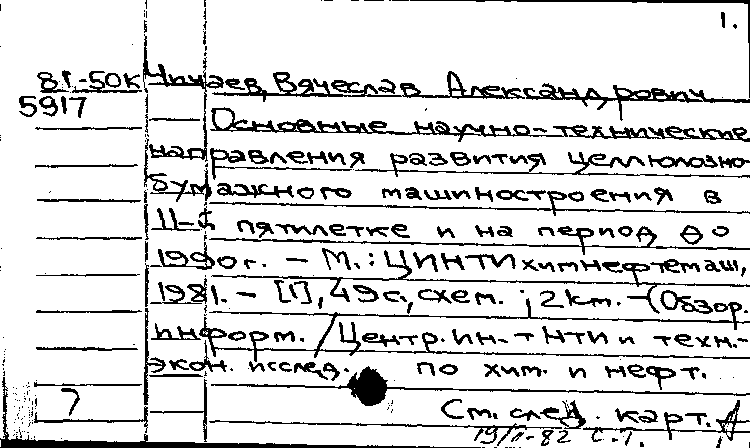 1.
81-50к Чичаев, Вячеслав Александрович
5917
Основные научно-технические
направления развития целлюлозно
бумажного машиностроения в
11-й пятилетке и на период до
1990г. – М.: ЦИНТИхимнефтемаш,
1981. – [1], 49с., схем. ; 22см. – (Обзор.
информ. / Центр. ин-т НТИ и техн.-
экон. исслед. по хим. и нефт.
7 См. след. карт.
82 с.